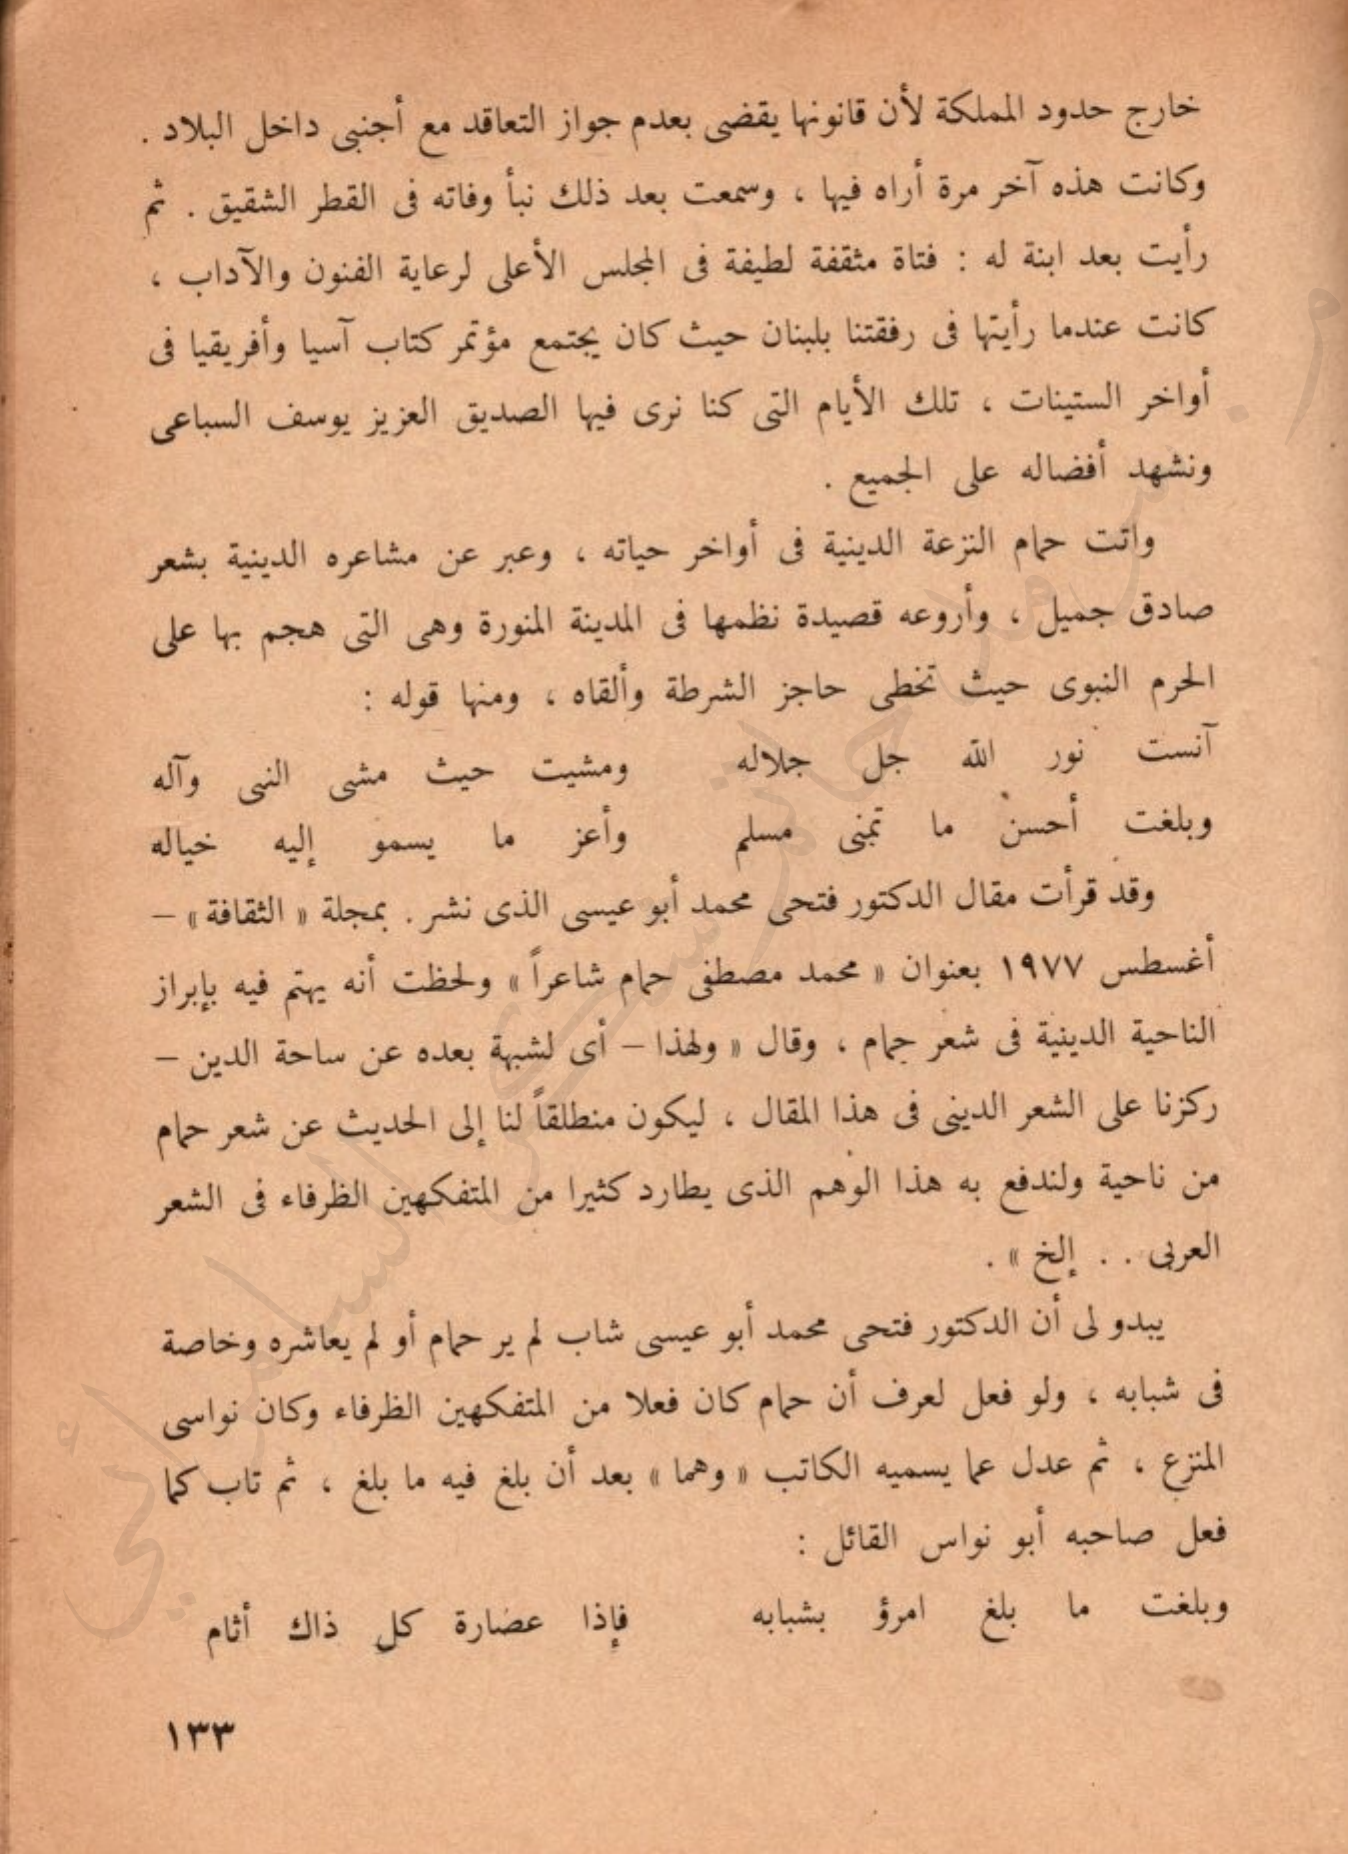 خارج حدود المملكة لأن قانونها يقضى بعدم جواز التعاقد مع أجنبى داخل البلاد .
وكانت هذه آخر مرة أراه فيها ، وسمعت بعد ذلك نبأ وفاته فى القطر الشقيق . ثم
رأيت بعد ابنة له : فتاة مثقفة لطيفة فى المجلس الأعلى لرعاية الفنون والآداب ،
كانت عندما رأيتها فى رفقتنا بلبنان حيث كان يجتمع مؤتمر كتاب آسيا وأفريقيا فى
أواخر الستينات ، تلك الأيام التى كنا نرى فيها الصديق العزيز يوسف السباعى
ونشهد أفضاله على الجميع .
واتت حمام النزعة الدينية فى أواخر حياته ، وعبر عن مشاعره الدينية بشعر
صادق جميل ، وأروعه قصيدة نظمها فى المدينة المنورة وهى التى هجم بها على
الحرم النبوى حيث تخطى حاجز الشرطة وألقاه ، ومنها قوله :
آنست نور الله جل جلاله ومشيت حيث مشى النبى وآله
وبلغت أحسن ما تمنى مسلم وأعز ما يسمو إليه خياله
وقد قرأت مقال الدكتور فتحى محمد أبو عيسى الذى نشر . بمجلة « الثقافة » –
أغسطس ١٩٧٧ بعنوان « محمد مصطفى حمام شاعراً » ولحظت أنه يهتم فيه بإبراز
الناحية الدينية فى شعر حمام ، وقال « ولهذا – أى لشبهة بعده عن ساحة الدين –
ركزنا على الشعر الدينى فى هذا المقال ، ليكون منطلقاً لنا إلى الحديث عن شعر حمام
من ناحية ولندفع به هذا الوهم الذى يطارد كثيرا من المتفكهين الظرفاء فى الشعر
العربى . . إلخ » .
يبدو لى أن الدكتور فتحى محمد أبو عيسى شاب لم ير حمام أو لم يعاشره وخاصة
فى شبابه ، ولو فعل لعرف أن حمام كان فعلا من المتفكهين الظرفاء وكان نواسى
المنزع ، ثم عدل عما يسميه الكاتب « وهما » بعد أن بلغ فيه ما بلغ ، ثم تاب كما
فعل صاحبه أبو نواس القائل :
وبلغت ما بلغ امرؤ بشبابه فإذا عصارة كل ذاك أثام
١٣٣